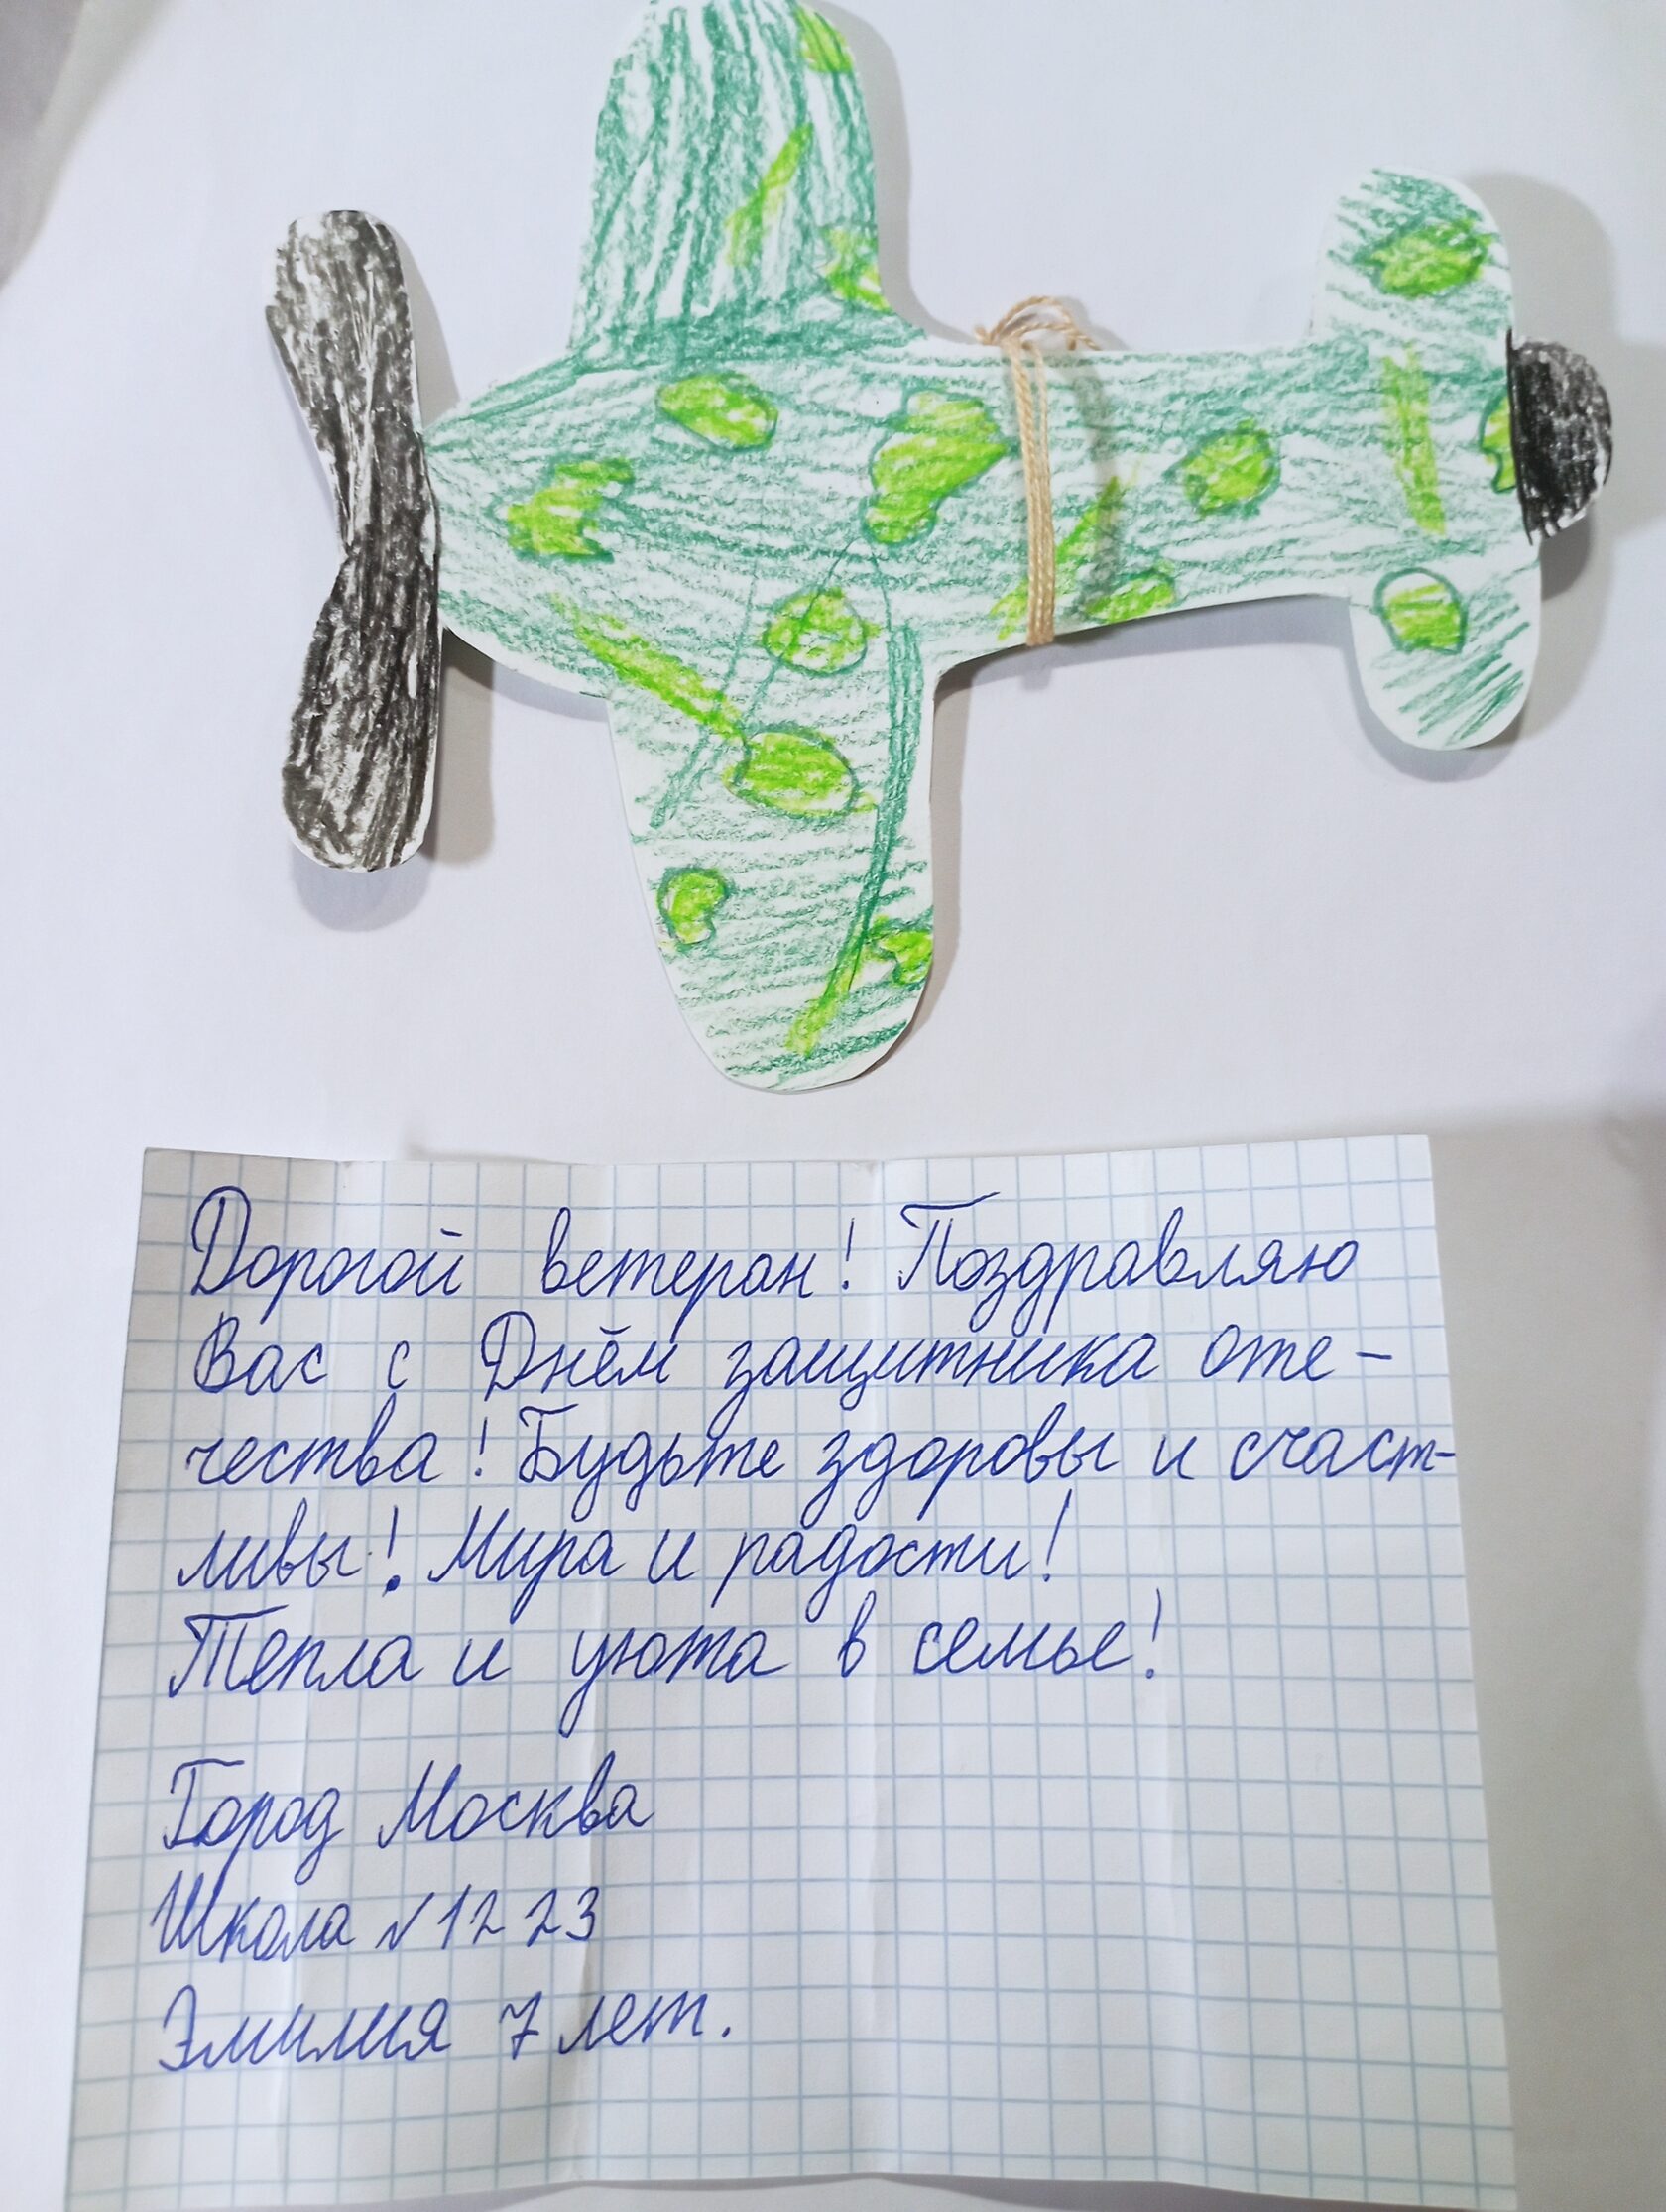 Дорогой ветеран! Поздравляю
Вас с Днём защитника оте-
чества! Будьте здоровы и счаст-
ливы! Мира и радости!
Тепла и уюта в семье!
Город Москва
Школа №1223
Эмилия 7 лет.